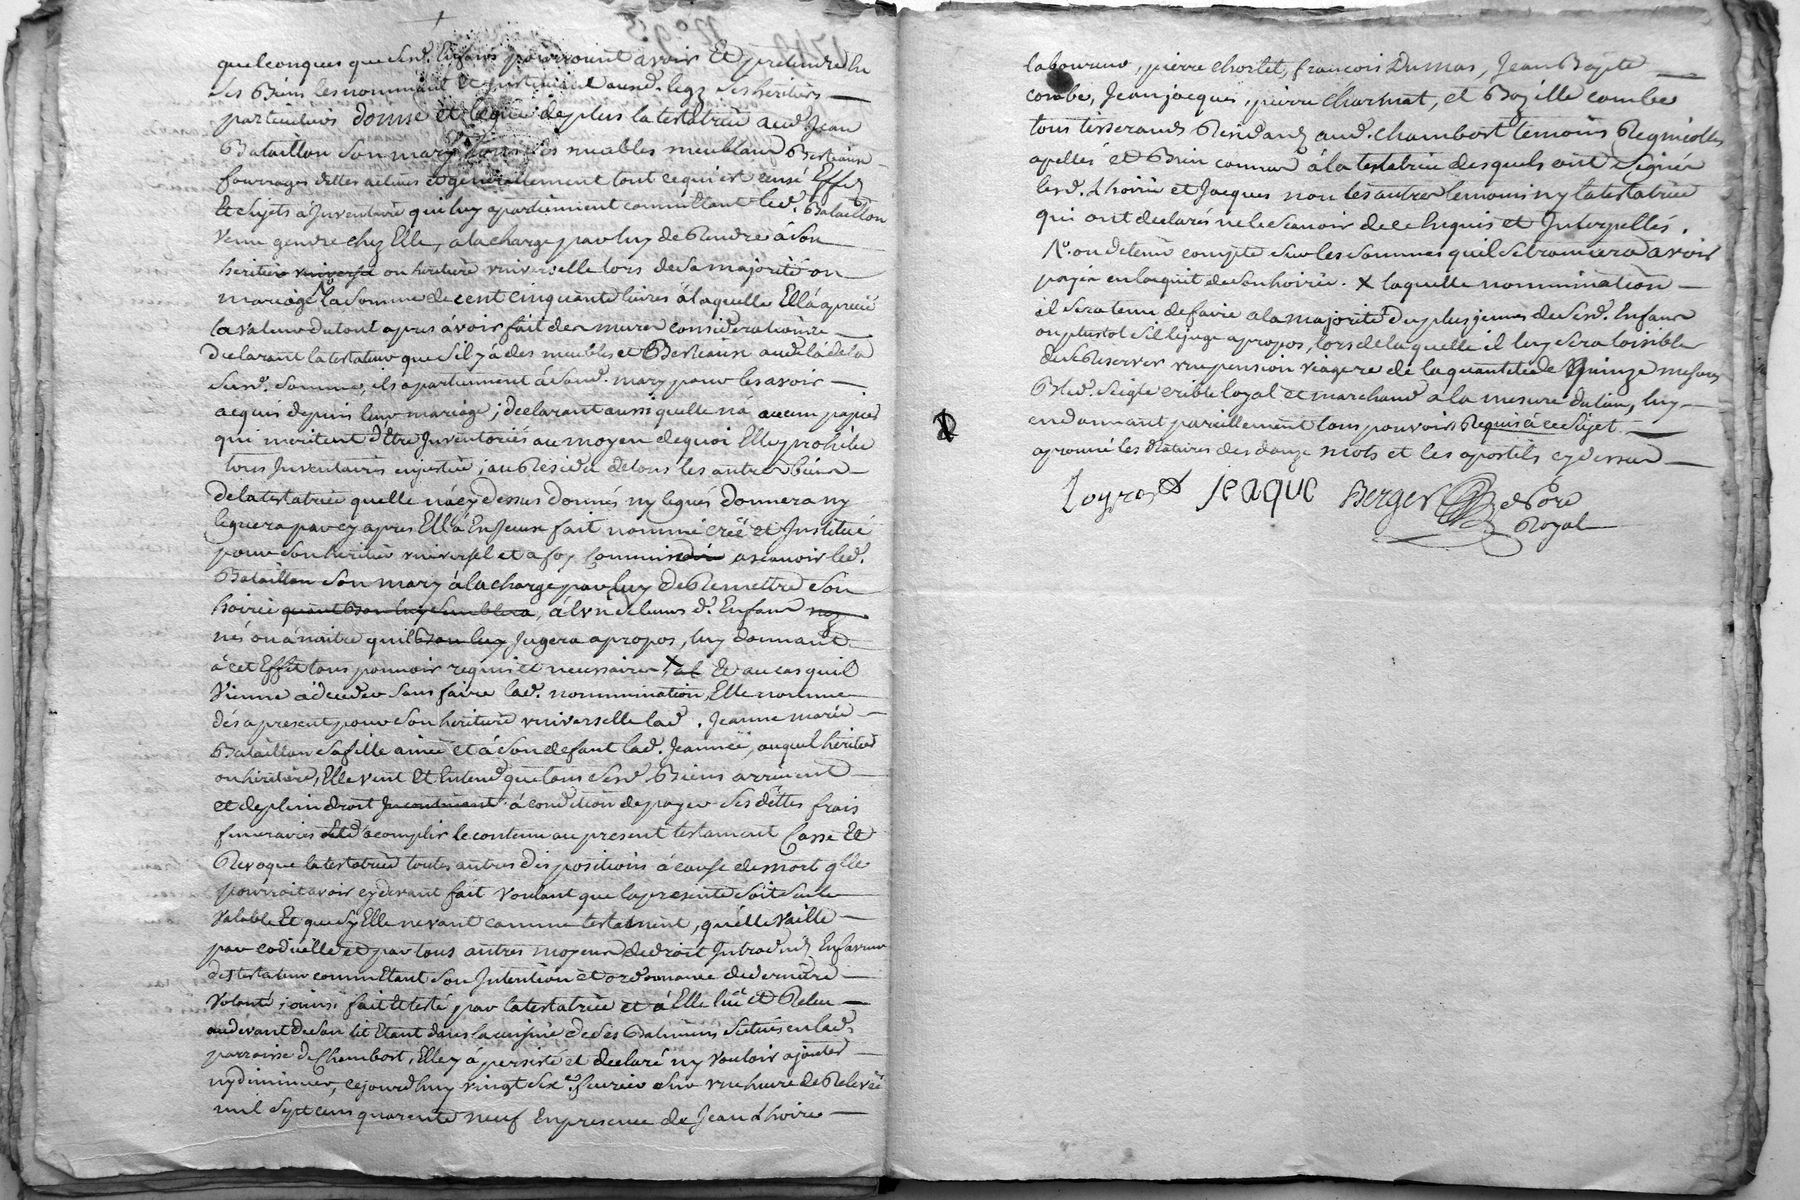 quelconques que sesd. Enfans pourroient avoir Et pretendre en
ses Biens les nommant et Instituant ausd. legz ses heritiers
particuliers donne et legue deplus la testatrice aud. Jean
Bataillon son mary tous ses meubles meublans Bestiaux
fourrages dettes actives et generallement tout cequi est censé Effez
Et sujets a Inventaire qui luy apartiennent comme Etant led. Bataillon
venu gendre chez Elle, a la charge par luy de Rendre a son
heritier universel ou heritiere universelle lors de sa majorité ou
mariage la somme de cent cinquante livres a laquelle Ella aprecié
la valeur du tout apres avoir fait des mures considerations
declarant la testatrice que s'il y a des meubles et Bestiaux audela de la
susd. somme, ils apartiennent a sond. mary pour les avoir
acquis depuis leur mariage; declarant aussi quelle na aucun papiers
qui meritent d'être Inventoriés au moyen dequoi Elle prohibe
tous Inventaires en justice; au Residu de tous les autres biens
de la testatrice quelle na cy dessus donnés ny legués donnera ny
leguera par cy apres Ell'a Enjceux fait nommé créé et Institué
pour son heritier universel et a foy commise a scavoir led.
Bataillon son mary a la charge par luy de Remettre son
hoirie quant Bon luy semblera, a l'un de leurs d. Enfans
nés ou a naitre quil Bon luy Jugera a propos, luy donnant
a cet Effet tous pouvoirs requis et necessaires X Et au cas quil
Vienne a deceder sans faire lad. nommination, Elle nomme
dés a present pour son heritiere universelle lad. Jeanne marie
Bataillon sa fille ainée et a son defaut lad. Jeanne, auquel heritier
ou heritiere, Elle veut Et Entend que tous sesd. Biens arrivent
et de plein droit Incontinant a condition de payer ses dettes frais
funeraires et d'acomplir le contenu au present testament Casse Et
Revoque la testatrice toutes autres dispositions a cause de mort qlle
pourroit avoir cy devant fait voulant que la presente soit seule
valable Et que sy Elle ne vaut comme testament, quelle vaille
par codicille et par tous autres moyens de droit Introduits En faveur
des testateurs comme Etant son Intention et ordonnance de derniere
volonté; ainsi fait et testé par la testatrice et a Elle lüe et Relue
au devant de son lit Etant dans la cuisine de ses Batimens situés en lad.
parroisse de Chambost, Elle y a persisté et declaré ny vouloir ajouter
ny diminuer, cejourdhuy vingt six fevrier sur une heure de Relevée
mil sept cens quarente neuf En presence de Jean Lhoire
laboureur, pierre Chorlet, francois Dumas, Jean Bapte
combe, Jean jacques, pierre Charmat, et Bazille combe
tous tisserands Residans aud. Chambost temoins Regnicolles
apellés et Bien connus a la testatrice desquels ont signés
lesd. Lhoire et Jacques non les autres temoins ny la testatrice
qui ont declarés ne le scavoir de ce Enquis et Interpellés.
ou detenir compte sur les sommes quil se trouvera avoir
payés en l'acquit de son hoirie. X laquelle nommination
il sera tenu de faire a la majorité du plus jeune de sesd. Enfans
ou plustot s'il le juge a propos, lors de laquelle il luy sera loisible
de se Reserver une pension viagere de la quantité de quinze mesures
Bled. seigle crible loyal et marchand a la mesure du lieu, luy
en donnant pareillement tous pouvoirs Requis a ce sujet.
aprouvé les Ratures des douze mots et les apostils cy dessus
Loyre Jeaque Berger Nore
Royal